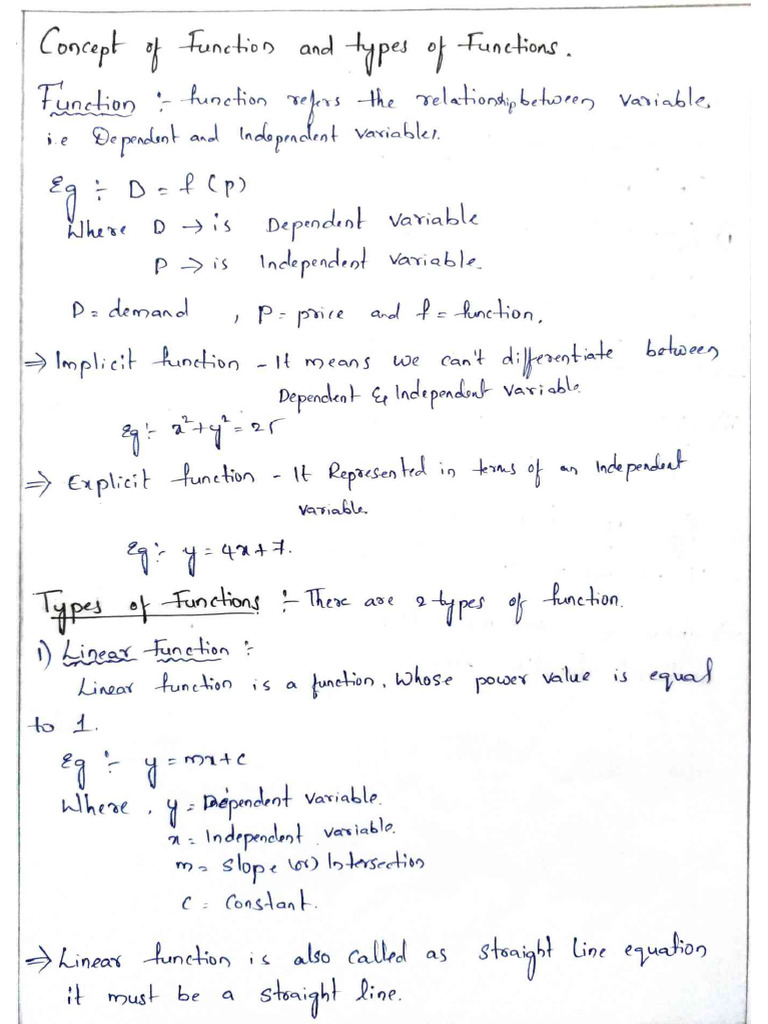 Concept of Function and types of Functions.
Function :- function refers the relationship between variable,
i.e Dependent and Independent variables.
Eg :- D = f (p)
Where D → is Dependent variable
P → is Independent variable.
D = demand , P = price and f = function,
⇒ Implicit function - It means we can't differentiate between
Dependent & Independent variable.
Eg :- x² + y² = 25
⇒ Explicit function - It Represented in terms of an Independent
variable.
Eg :- y = 4x + 7.
Types of Functions :- There are 2 types of function.
1) Linear Function :-
Linear function is a function, Whose power value is equal
to 1.
Eg :- y = mx + c
Where , y = Dependent variable.
x = Independent variable.
m = Slope (or) Intersection
C = Constant.
⇒ Linear function is also called as straight line equation
it must be a straight line.